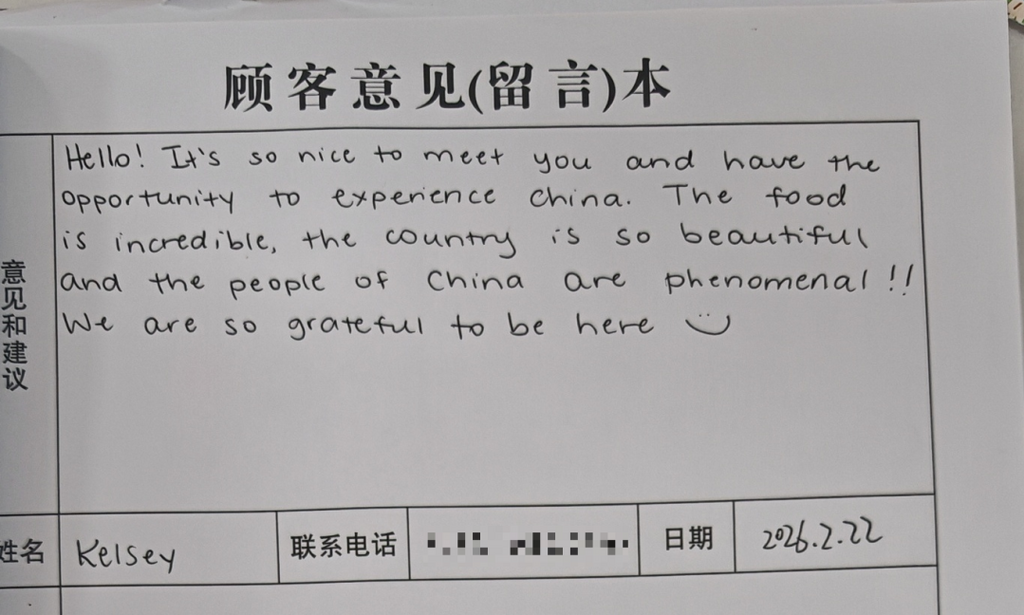 顾客意见(留言)本
意见和建议
Hello! It's so nice to meet you and have the
opportunity to experience China. The food
is incredible, the country is so beautiful
and the people of China are phenomenal!!
We are so grateful to be here
姓名 Kelsey 联系电话 日期 2026.2.22